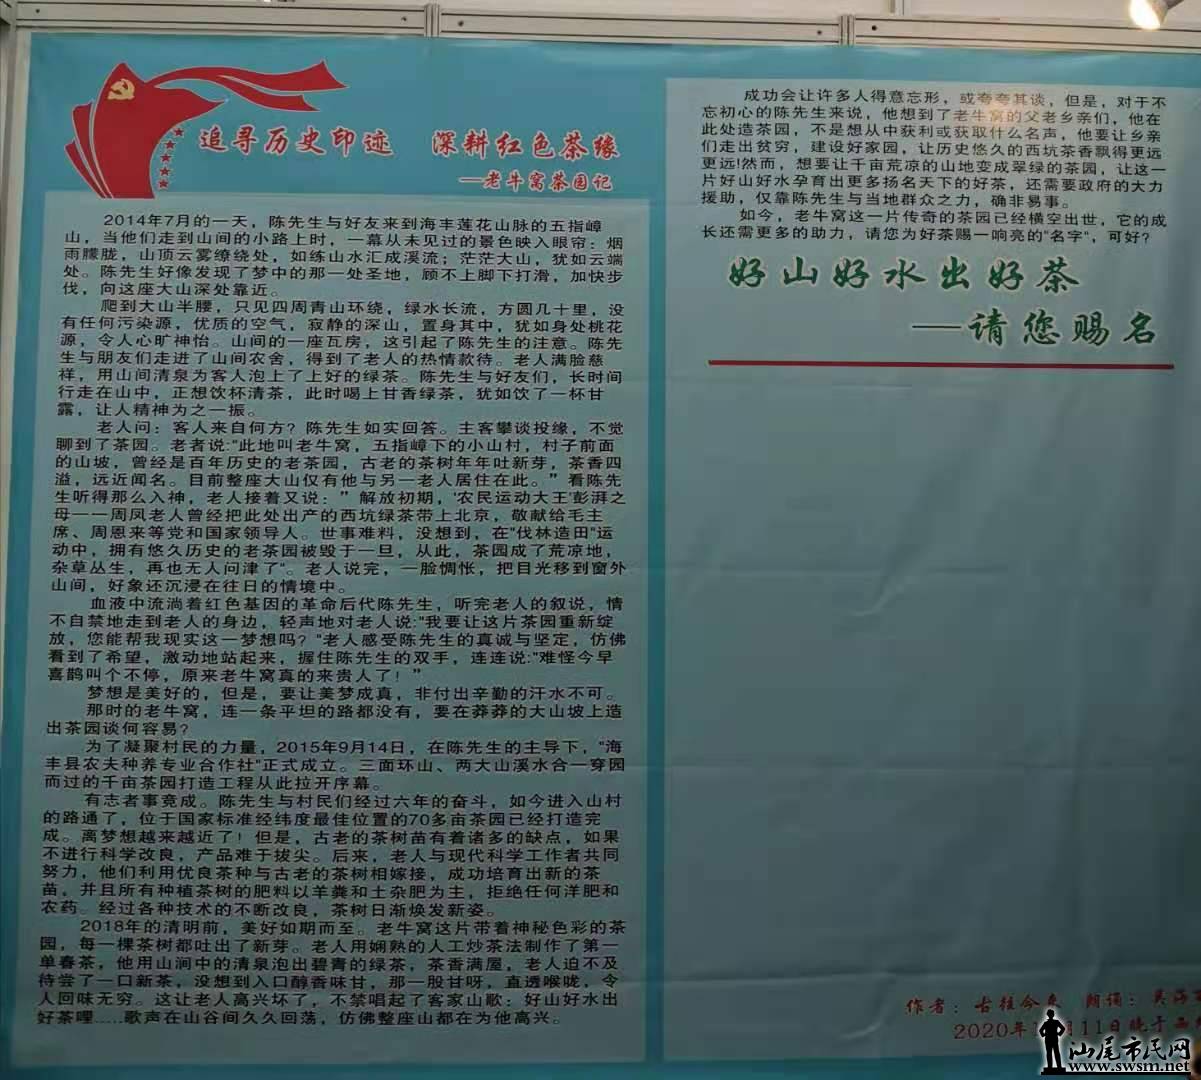 追寻历史印迹 深耕红色茶缘
—老牛窝茶园记
2014年7月的一天，陈先生与好友来到海丰莲花山脉的五指嶂
山，当他们走到山间的小路上时，一幕从未见过的景色映入眼帘：烟
雨朦胧，山顶云雾缭绕处，如练山水汇成溪流；茫茫大山，犹如云端
处。陈先生好像发现了梦中的那一处圣地，顾不上脚下打滑，加快步
伐，向这座大山深处靠近。
爬到大山半腰，只见四周青山环绕，绿水长流，方圆几十里，没
有任何污染源，优质的空气，寂静的深山，置身其中，犹如身处桃花
源，令人心旷神怡。山间的一座瓦房，这引起了陈先生的注意。陈先
生与朋友们走进了山间农舍，得到了老人的热情款待。老人满脸慈
祥，用山间清泉为客人泡上了上好的绿茶。陈先生与好友们，长时间
行走在山中，正想饮杯清茶，此时喝上甘香绿茶，犹如饮了一杯甘
露，让人精神为之一振。
老人问：客人来自何方？陈先生如实回答。主客攀谈投缘，不觉
聊到了茶园。老者说:"此地叫老牛窝，五指嶂下的小山村，村子前面
的山坡，曾经是百年历史的老茶园，古老的茶树年年吐新芽，茶香四
溢，远近闻名。目前整座大山仅有他与另一老人居住在此。”看陈先
生听得那么入神，老人接着又说：”解放初期，'农民运动大王'彭湃之
母——周凤老人曾经把此处出产的西坑绿茶带上北京，敬献给毛主
席、周恩来等党和国家领导人。世事难料，没想到，在"伐林造田"运
动中，拥有悠久历史的老茶园被毁于一旦，从此，茶园成了荒凉地，
杂草丛生，再也无人问津了"。老人说完，一脸惆怅，把目光移到窗外
山间，好象还沉浸在往日的情境中。
血液中流淌着红色基因的革命后代陈先生，听完老人的叙说，情
不自禁地走到老人的身边，轻声地对老人说:"我要让这片茶园重新绽
放，您能帮我现实这一梦想吗？"老人感受陈先生的真诚与坚定，仿佛
看到了希望，激动地站起来，握住陈先生的双手，连连说:"难怪今早
喜鹊叫个不停，原来老牛窝真的来贵人了！”
梦想是美好的，但是，要让美梦成真，非付出辛勤的汗水不可。
那时的老牛窝，连一条平坦的路都没有，要在莽莽的大山坡上造
出茶园谈何容易？
为了凝聚村民的力量，2015年9月14日，在陈先生的主导下，"海
丰县农夫种养专业合作社"正式成立。三面环山、两大山溪水合一穿园
而过的千亩茶园打造工程从此拉开序幕。
有志者事竟成。陈先生与村民们经过六年的奋斗，如今进入山村
的路通了，位于国家标准经纬度最佳位置的70多亩茶园已经打造完
成。离梦想越来越近了！但是，古老的茶树苗有着诸多的缺点，如果
不进行科学改良，产品难于拔尖。后来，老人与现代科学工作者共同
努力，他们利用优良茶种与古老的茶树相嫁接，成功培育出新的茶
苗，并且所有种植茶树的肥料以羊粪和土杂肥为主，拒绝任何洋肥和
农药。经过各种技术的不断改良，茶树日渐焕发新姿。
2018年的清明前，美好如期而至。老牛窝这片带着神秘色彩的茶
园，每一棵茶树都吐出了新芽。老人用娴熟的人工炒茶法制作了第一
单春茶，他用山涧中的清泉泡出碧青的绿茶，茶香满屋，老人迫不及
待尝了一口新茶，没想到入口醇香味甘，那一股甘呀，直透喉咙，令
人回味无穷。这让老人高兴坏了，不禁唱起了客家山歌：好山好水出
好茶哩……歌声在山谷间久久回荡，仿佛整座山都在为他高兴。
成功会让许多人得意忘形，或夸夸其谈，但是，对于不
忘初心的陈先生来说，他想到了老牛窝的父老乡亲们，他在
此处造茶园，不是想从中获利或获取什么名声，他要让乡亲
们走出贫穷，建设好家园，让历史悠久的西坑茶香飘得更远
更远!然而，想要让千亩荒凉的山地变成翠绿的茶园，让这一
片好山好水孕育出更多扬名天下的好茶，还需要政府的大力
援助，仅靠陈先生与当地群众之力，确非易事。
如今，老牛窝这一片传奇的茶园已经横空出世，它的成
长还需更多的助力，请您为好茶赐一响亮的"名字"，可好？
好山好水出好茶
—请您赐名
作者：古往今来 朗诵：吴海
2020年1 月11日晚于
汕尾市民网
www.swsm.net